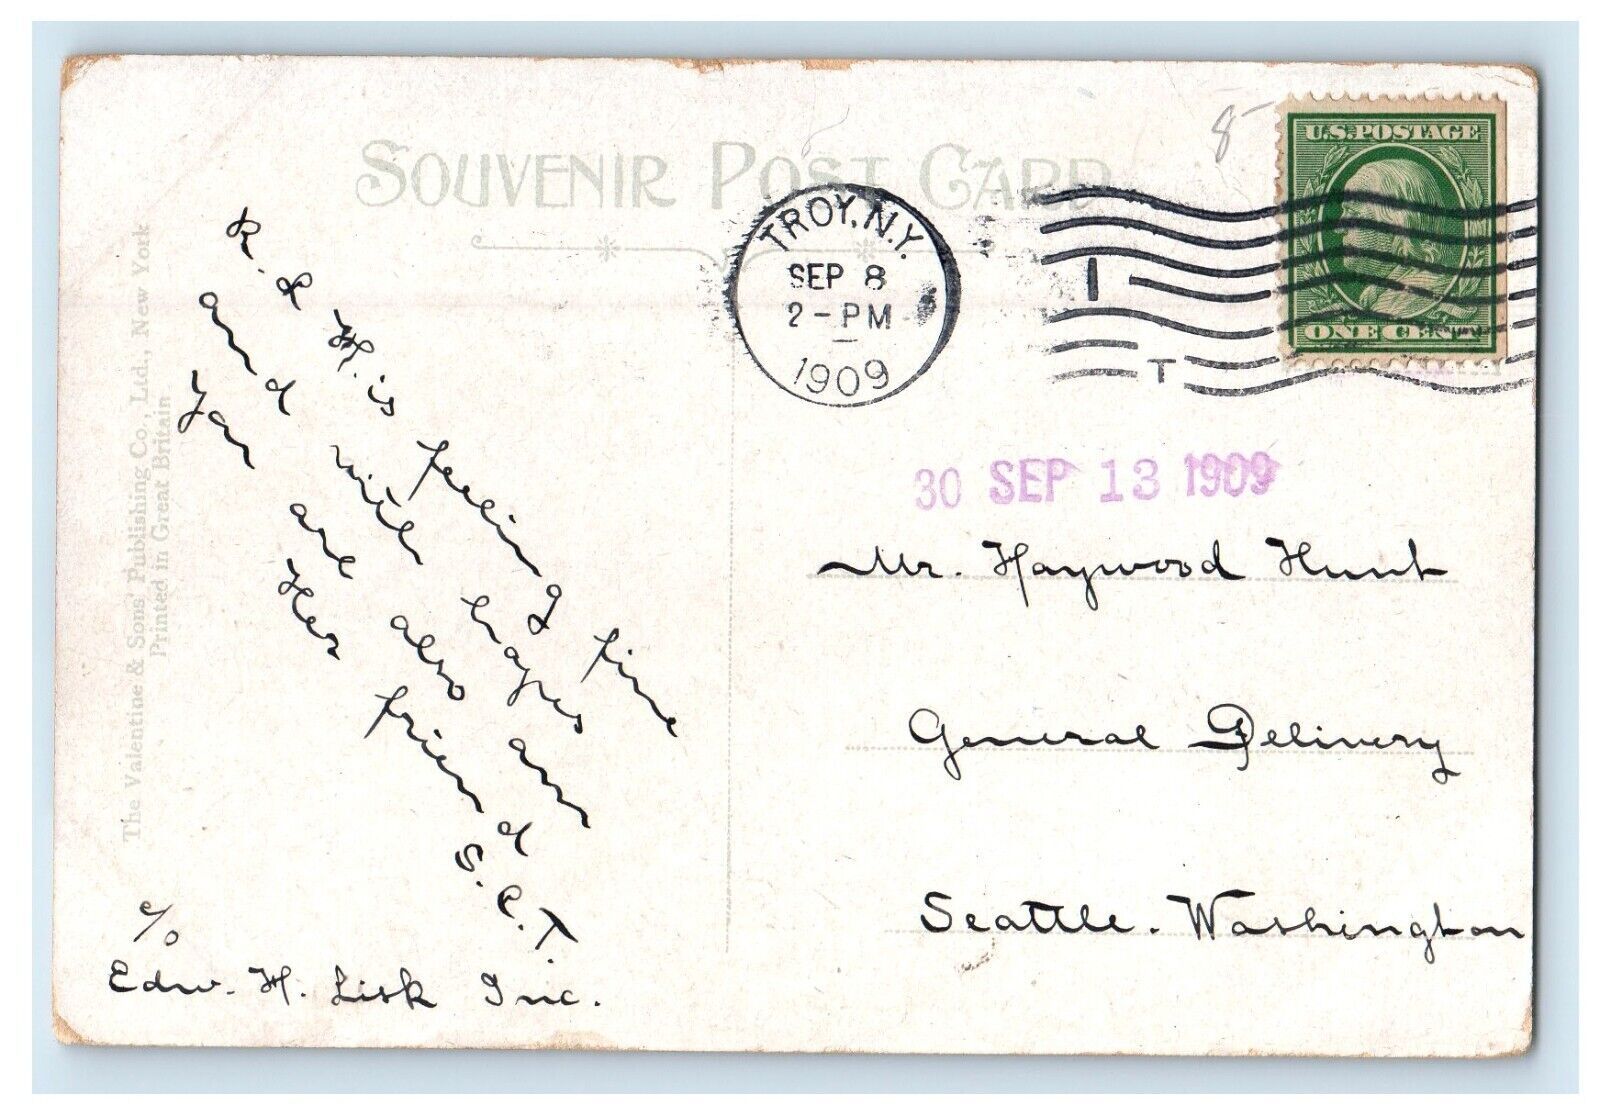 SOUVENIR POST CARD
8-
U.S. POSTAGE
ONE CENT
TROY, N.Y.
SEP 8
2-PM
1909
I
T
30 SEP 13 1909
Mr. Haywood Hunt
General Delivery
Seattle. Washington
R. & H. is feeling fine
and with hopes
you are also am
Her friend
S. C. T.
c/o
Edw. H. Lisk Inc.
The Valentine & Sons' Publishing Co., Ltd., New York
Printed in Great Britain